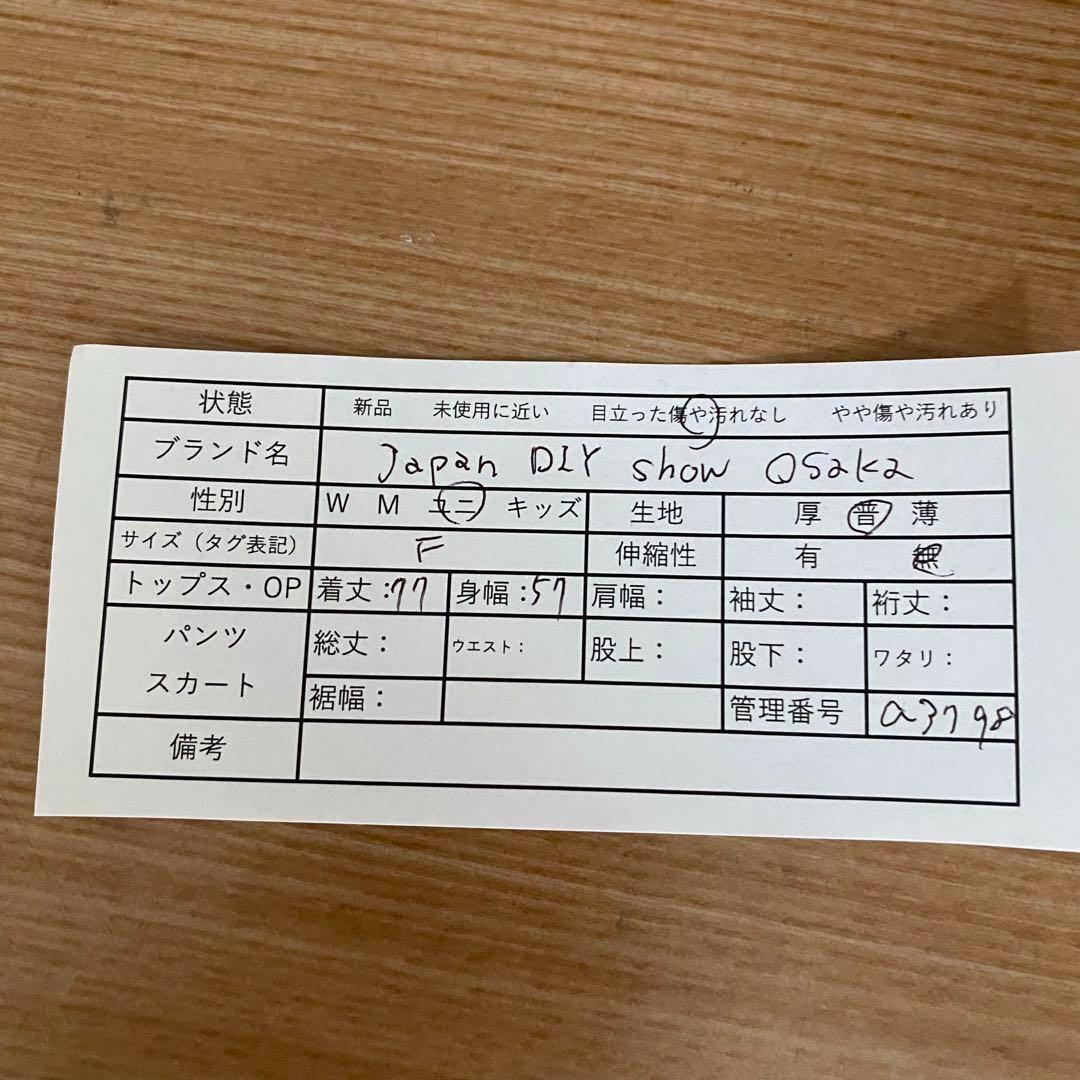 状態 新品 未使用に近い 目立った傷や汚れなし やや傷や汚れあり
ブランド名 Japan DIY show Osaka
性別 W M ユニ キッズ 生地 厚 普 薄
サイズ（タグ表記） F 伸縮性 有 無
トップス・OP 着丈：77 身幅：57 肩幅： 袖丈： 裄丈：
パンツ 総丈： ウエスト： 股上： 股下： ワタリ：
スカート 裾幅： 管理番号 a3798
備考